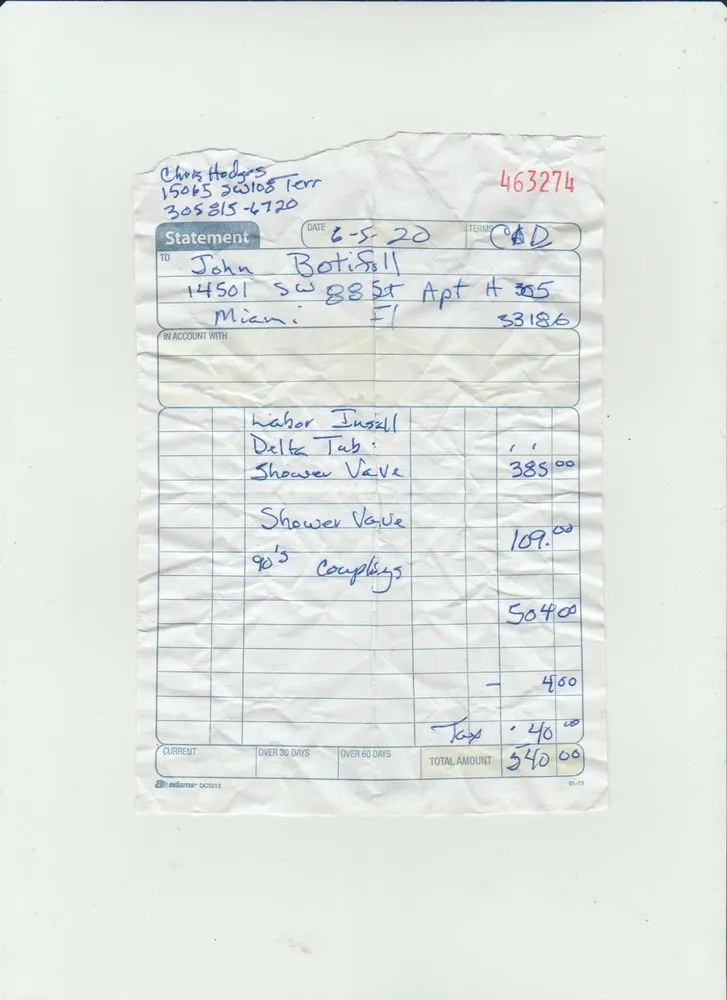 Chris Hodges
15065 SW 108 Terr
463274
305 815-6720
Statement
DATE 6-5-20
TERMS COD
TO John Botifoll
14501 SW 88 St Apt # 305
Miami Fl 33186
IN ACCOUNT WITH
Labor Install
Delta Tub :
Shower Vave 385 00
Shower Vavue
109.00
90's Couplings
504 00
- 4 00
Tax 40 00
CURRENT OVER 30 DAYS OVER 60 DAYS TOTAL AMOUNT 540 00
adams DC5812 01-11